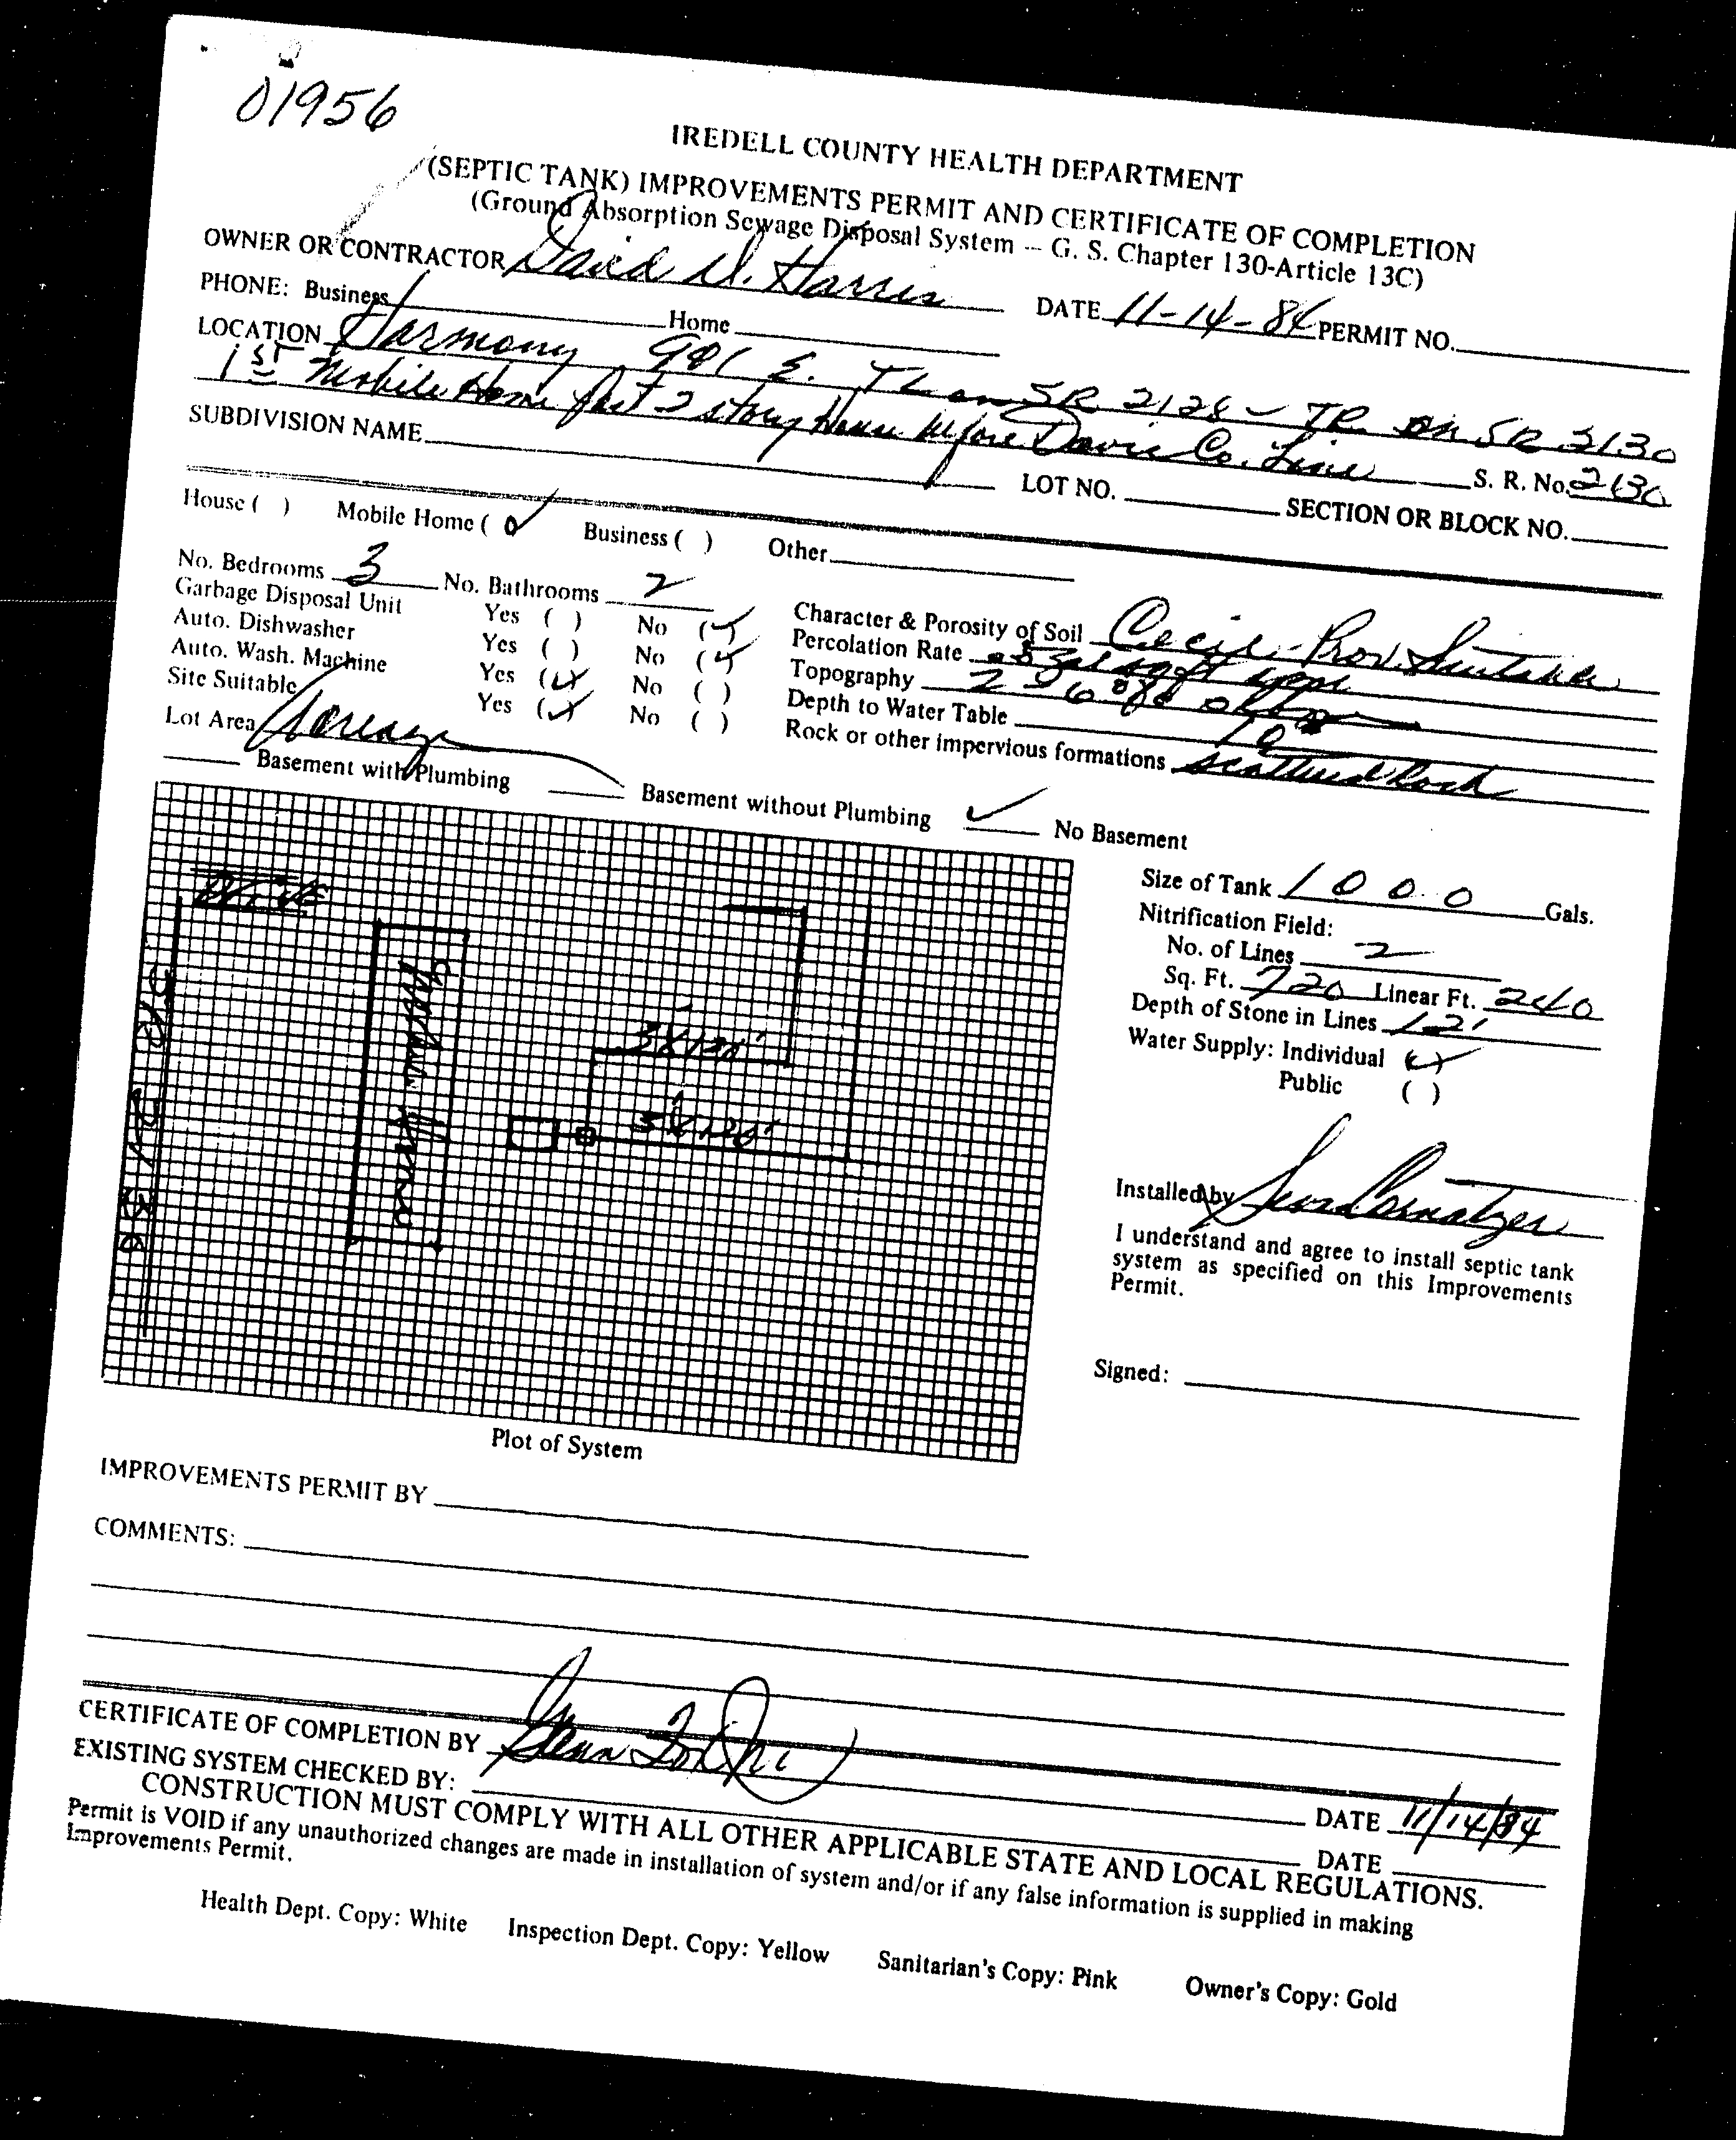 01956
IREDELL COUNTY HEALTH DEPARTMENT
(SEPTIC TANK) IMPROVEMENTS PERMIT AND CERTIFICATE OF COMPLETION
(Ground Absorption Sewage Disposal System -- G. S. Chapter 130-Article 13C)
OWNER OR CONTRACTOR David D. Harris DATE 11-14-84 PERMIT NO.
PHONE: Business Home
LOCATION Harmony 901 E. TL on SR 2128 - TR on SR 2130
1st Mobile Home past 2 story house before Davie Co. Line S. R. No. 2130
SUBDIVISION NAME LOT NO. SECTION OR BLOCK NO.
House ( ) Mobile Home (✓) Business ( ) Other
No. Bedrooms 3 No. Bathrooms 2
Garbage Disposal Unit Yes ( ) No (✓)
Auto. Dishwasher Yes ( ) No (✓)
Auto. Wash. Machine Yes (✓) No ( )
Site Suitable Yes (✓) No ( )
Lot Area Acreage
Character & Porosity of Soil Cecil - Prov. Suitable
Percolation Rate gal sq ft
Topography 2 - 6 %
Depth to Water Table
Rock or other impervious formations Scattered Rock
Basement with Plumbing Basement without Plumbing ✓ No Basement
Drive
SR 2130
Mobile Home
3'X120'
3'X120'
Plot of System
Size of Tank 1000 Gals.
Nitrification Field:
No. of Lines 2
Sq. Ft. 720 Linear Ft. 240
Depth of Stone in Lines 12"
Water Supply: Individual (✓)
Public ( )
Installed by Cornatzer
I understand and agree to install septic tank
system as specified on this Improvements
Permit.
Signed:
IMPROVEMENTS PERMIT BY
COMMENTS:
CERTIFICATE OF COMPLETION BY DATE 11/14/84
EXISTING SYSTEM CHECKED BY: DATE
CONSTRUCTION MUST COMPLY WITH ALL OTHER APPLICABLE STATE AND LOCAL REGULATIONS.
Permit is VOID if any unauthorized changes are made in installation of system and/or if any false information is supplied in making
Improvements Permit.
Health Dept. Copy: White Inspection Dept. Copy: Yellow Sanitarian's Copy: Pink Owner's Copy: Gold